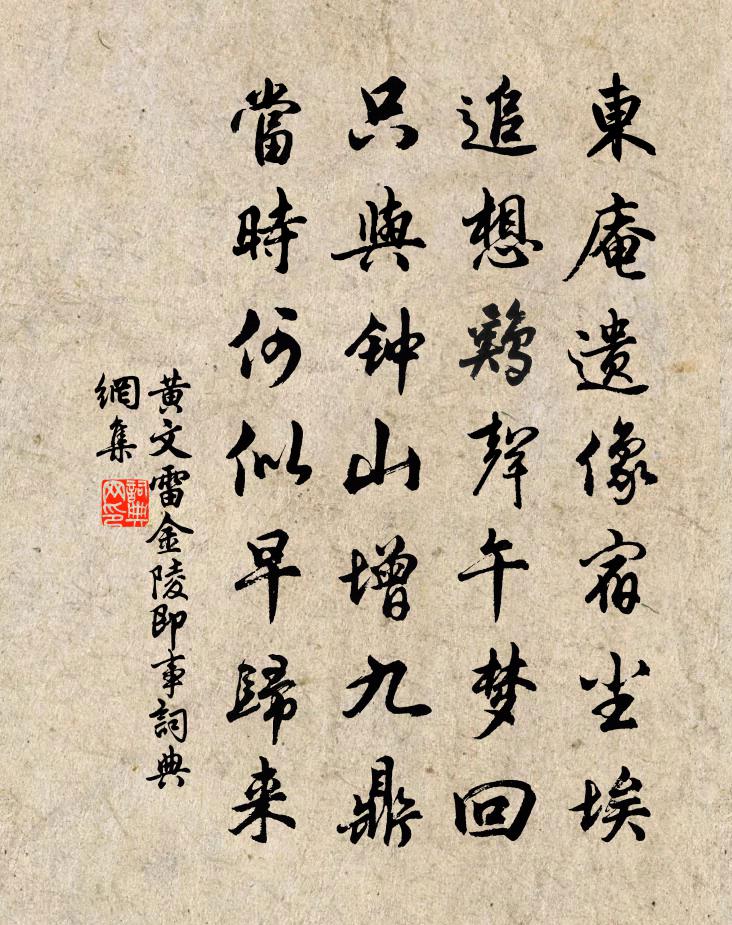 東庵遺像宿尘埃
追想鷄聲午梦回
只與钟山增九鼎
當時何似早歸来
黄文雷金陵即事詞典
網集
詞典
网印